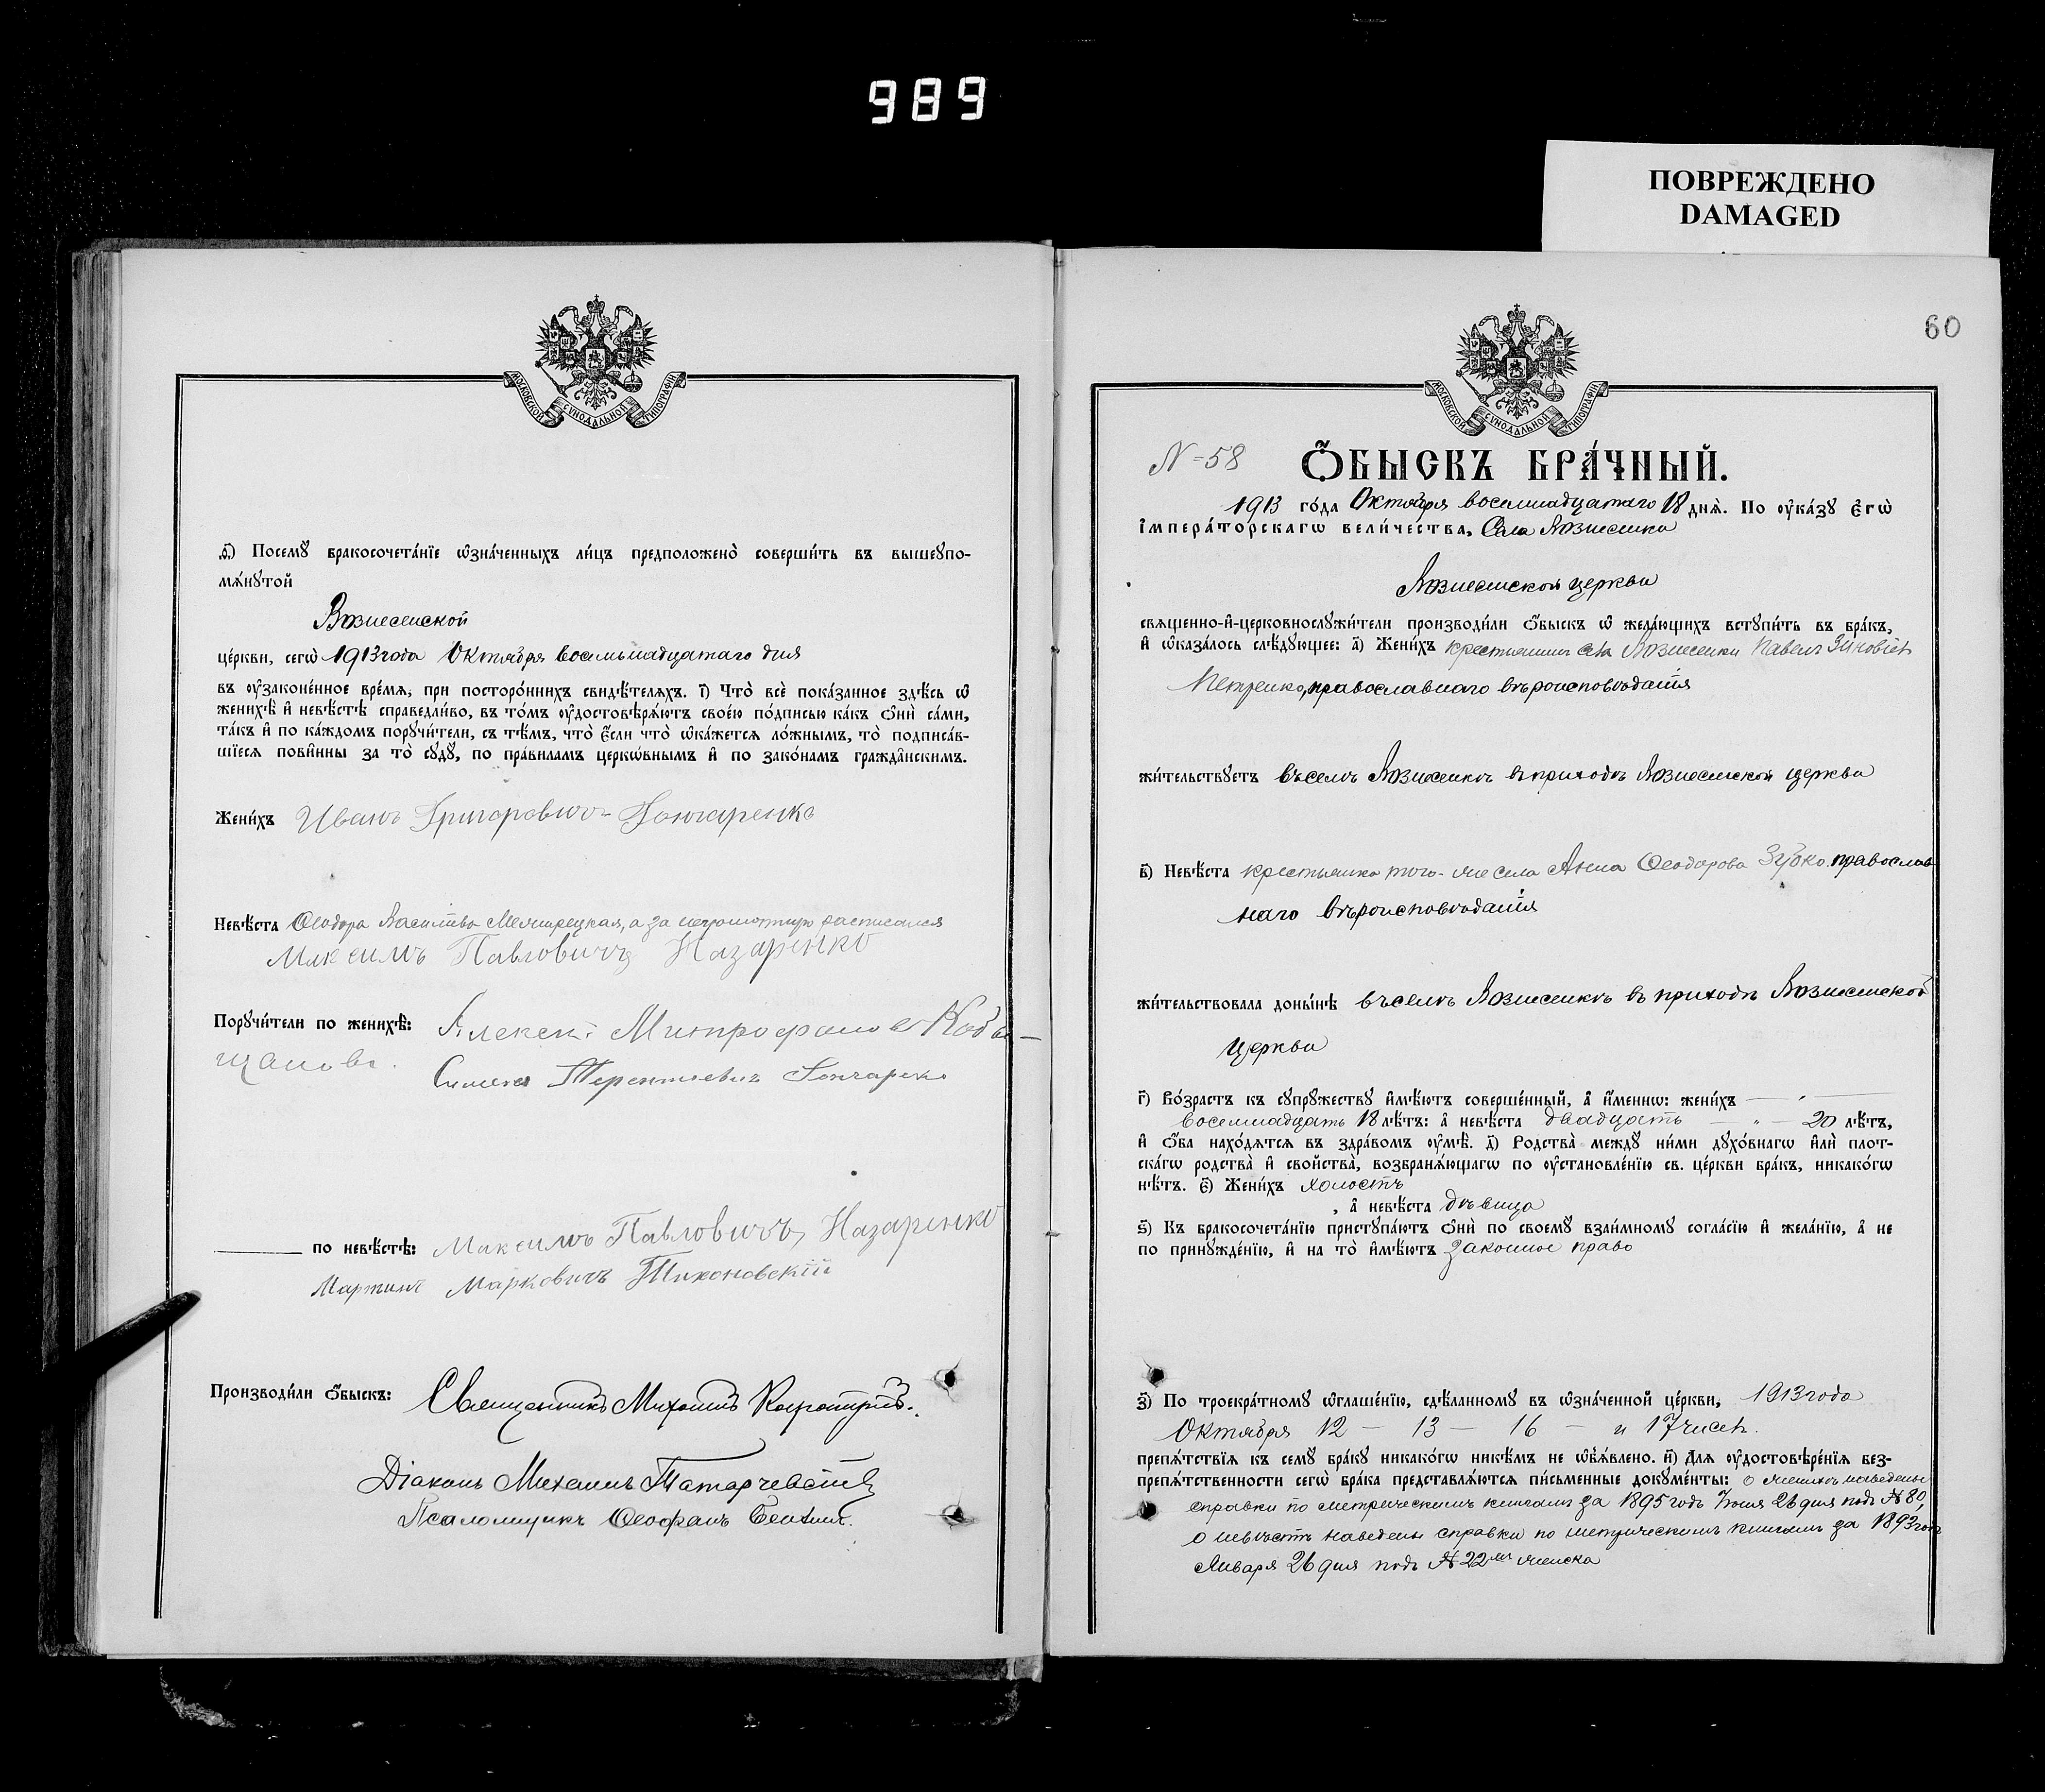 989
ПОВРЕЖДЕНО
DAMAGED
МОСКОВСКОЙ СѴНОДАЛЬНОЙ ТИПОГРАФІИ
ѳ҃) Посемꙋ бракосочета́нїе ѡзна́ченныхъ ли́цъ предположено̀ соверши́ть въ вышеꙋпо-
мѧ́нꙋтой
Вознесенской
це́ркви, сегѡ̀ 1913 года Октября восемьнадцатаго дня
въ оу҆зако́ненное вре́мѧ, при посторо́ннихъ свидѣ́телѧхъ. і҃) Что̀ всѐ пока́занное здѣ́сь ѡ҆
женихѣ̀ и҆ невѣ́стѣ справедли́во, въ то́мъ оу҆достовѣрѧ́ютъ свое́ю по́дписью ка́къ ѻ҆нѝ са́ми,
та́къ и҆ по ка́ждомъ порꙋчи́тели, съ тѣ́мъ, что̀ є҆́сли что̀ ѡ҆ка́жетсѧ ло́жнымъ, то̀ подписа́в-
шїесѧ пови́нны за то̀ сꙋдꙋ̀, по пра́виламъ церкѡ́внымъ и҆ по зако́намъ гражда́нскимъ.
Жени́хъ Иванъ Григоровичъ Гончаренко
Невѣ́ста Ѳеодора а за неграмотную расписался
Максимъ Павловичъ Назаренко
Порꙋчи́тели по женихѣ̀: Алексѣй Митрофановъ Коба-
щановъ.
Симеонъ Терентіевичъ Гончаренко
по невѣ́стѣ: Максимъ Павловичъ Назаренко
Мартинъ Марковичъ Тихоновскій
Производи́ли ѻ҆́быскъ: Священникъ Михаилъ
Діаконъ Михаилъ Татарчевскій
Псаломщикъ Ѳеофанъ
60
МОСКОВСКОЙ СѴНОДАЛЬНОЙ ТИПОГРАФІИ
N=58 Ѻ҆́БЫСКЪ БРА́ЧНЫЙ.
1913 го́да Октября восемнадцатаго 18 днѧ̀. По оу҆ка́зꙋ є҆гѡ̀
і҆мпера́торскагѡ вели́чества, Села Вознесенка
Вознесенской церкви
свѧщенно-и҆-церковнослꙋжи́тели производи́ли ѻ҆́быскъ ѡ҆ жела́ющихъ встꙋпи́ть въ бра́къ,
и҆ ѡ҆каза́лось слѣ́дꙋющее: а҃) Жени́хъ крестьянинъ села Вознесенки Павелъ Зиновіев
Петренко, православнаго вѣроисповѣданія
жи́тельствꙋетъ въ селѣ Вознесенкѣ въ приходѣ Вознесенской церкви
в҃) Невѣ́ста крестьянка того-же села Анна Ѳеодорова Зубко православ
наго вѣроисповѣданія
жи́тельствовала доны́нѣ въ селѣ Вознесенкѣ въ приходѣ Вознесенской
церкви
г҃) Во́зрастъ къ сꙋпрꙋжествꙋ и҆мѣ́ютъ соверше́нный, а҆ и҆́менно: жени́хъ
восемнадцать 18 лѣ́тъ: а҆ невѣ́ста двадцать — „ — 20 лѣ́тъ,
и҆ ѻ҆́ба нахо́дѧтсѧ въ здра́вомъ оу҆мѣ̀. д҃) Родства̀ междꙋ ни́ми дꙋхо́внагѡ и҆лѝ плот-
ска́гѡ родства̀ и҆ сво́йства̀, возбранѧ́ющагѡ по оу҆становле́нїю св. це́ркви бра́къ, никако́гѡ
нѣ́тъ. є҃) Жени́хъ холостъ
, а҆ невѣ́ста дѣвица
ѕ҃) Къ бракосочета́нїю пристꙋпа́ютъ ѻ҆нѝ по своемꙋ взаи́мномꙋ согла́сїю и҆ жела́нїю, а҆ не
по принꙋжде́нїю, и҆ на то̀ и҆мѣ́ютъ законное право
з҃) По троекра́тномꙋ ѡ҆глаше́нїю, сдѣ́ланномꙋ въ ѡ҆зна́ченной це́ркви, 1913 года
Октября 12 — 13 — 16 — и 17 чиселъ.
препѧ́тствїѧ къ семꙋ бра́кꙋ никако́гѡ никѣ́мъ не ѡ҆б̾ѧ́влено. и҃) Длѧ оу҆достовѣре́нїѧ без-
препѧ́тственности сегѡ̀ бра́ка представлѧ́ютсѧ пи́сьменные докꙋме́нты: о женихѣ наведены
справки по метрическимъ книгамъ за 1895 годъ Іюня 26 дня подъ № 80,
о невѣстѣ наведены справки по метрическимъ книгамъ за 1893 годъ
Января 26 дня подъ № 22мъ женска